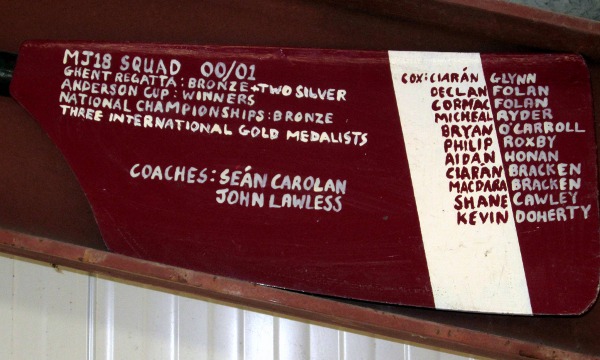 MJ18 SQUAD 00/01
GHENT REGATTA: BRONZE + TWO SILVER
ANDERSON CUP: WINNERS
NATIONAL CHAMPIONSHIPS: BRONZE
THREE INTERNATIONAL GOLD MEDALISTS
COACHES: SEÁN CAROLAN
JOHN LAWLESS
COX: CIARÁN GLYNN
DECLAN FOLAN
CORMAC FOLAN
MICHEAL RYDER
BRYAN O'CARROLL
PHILIP ROXBY
AIDAN HONAN
CIARÁN BRACKEN
MACDARA BRACKEN
SHANE CAWLEY
KEVIN DOHERTY